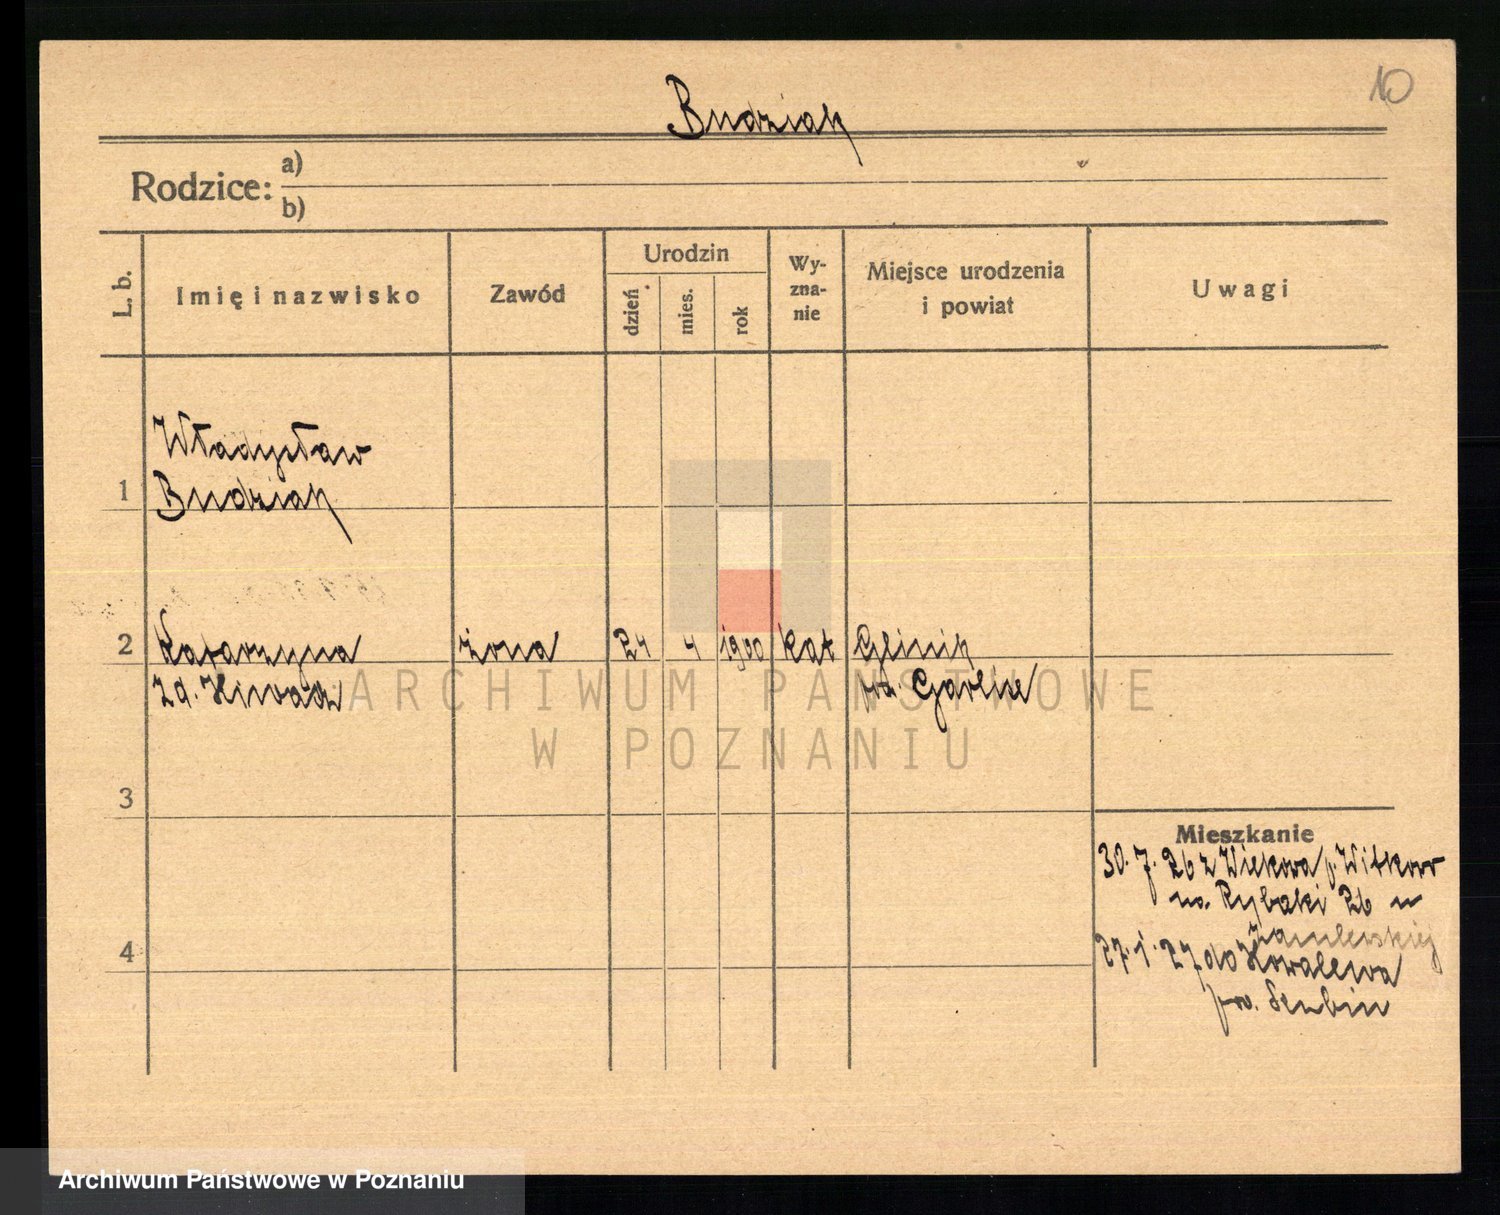 10
Budziak
Rodzice: a)
b)
L. b.
Imię i nazwisko
Zawód
Urodzin
dzień
mies.
rok
Wy-
zna-
nie
Miejsce urodzenia
i powiat
Uwagi
Władysław
1 Budziak
2 Katarzyna żona 24 4 1900 kat Glinik
zd.
pow. Gorlice
ARCHIWUM PAŃSTWOWE
W POZNANIU
3
Mieszkanie
30. 7. 26 z Wiekowa p. Witkow
na Rybaki 26 u
4
27. 1. 27 do Kowalewa
pow. Szubin
Archiwum Państwowe w Poznaniu